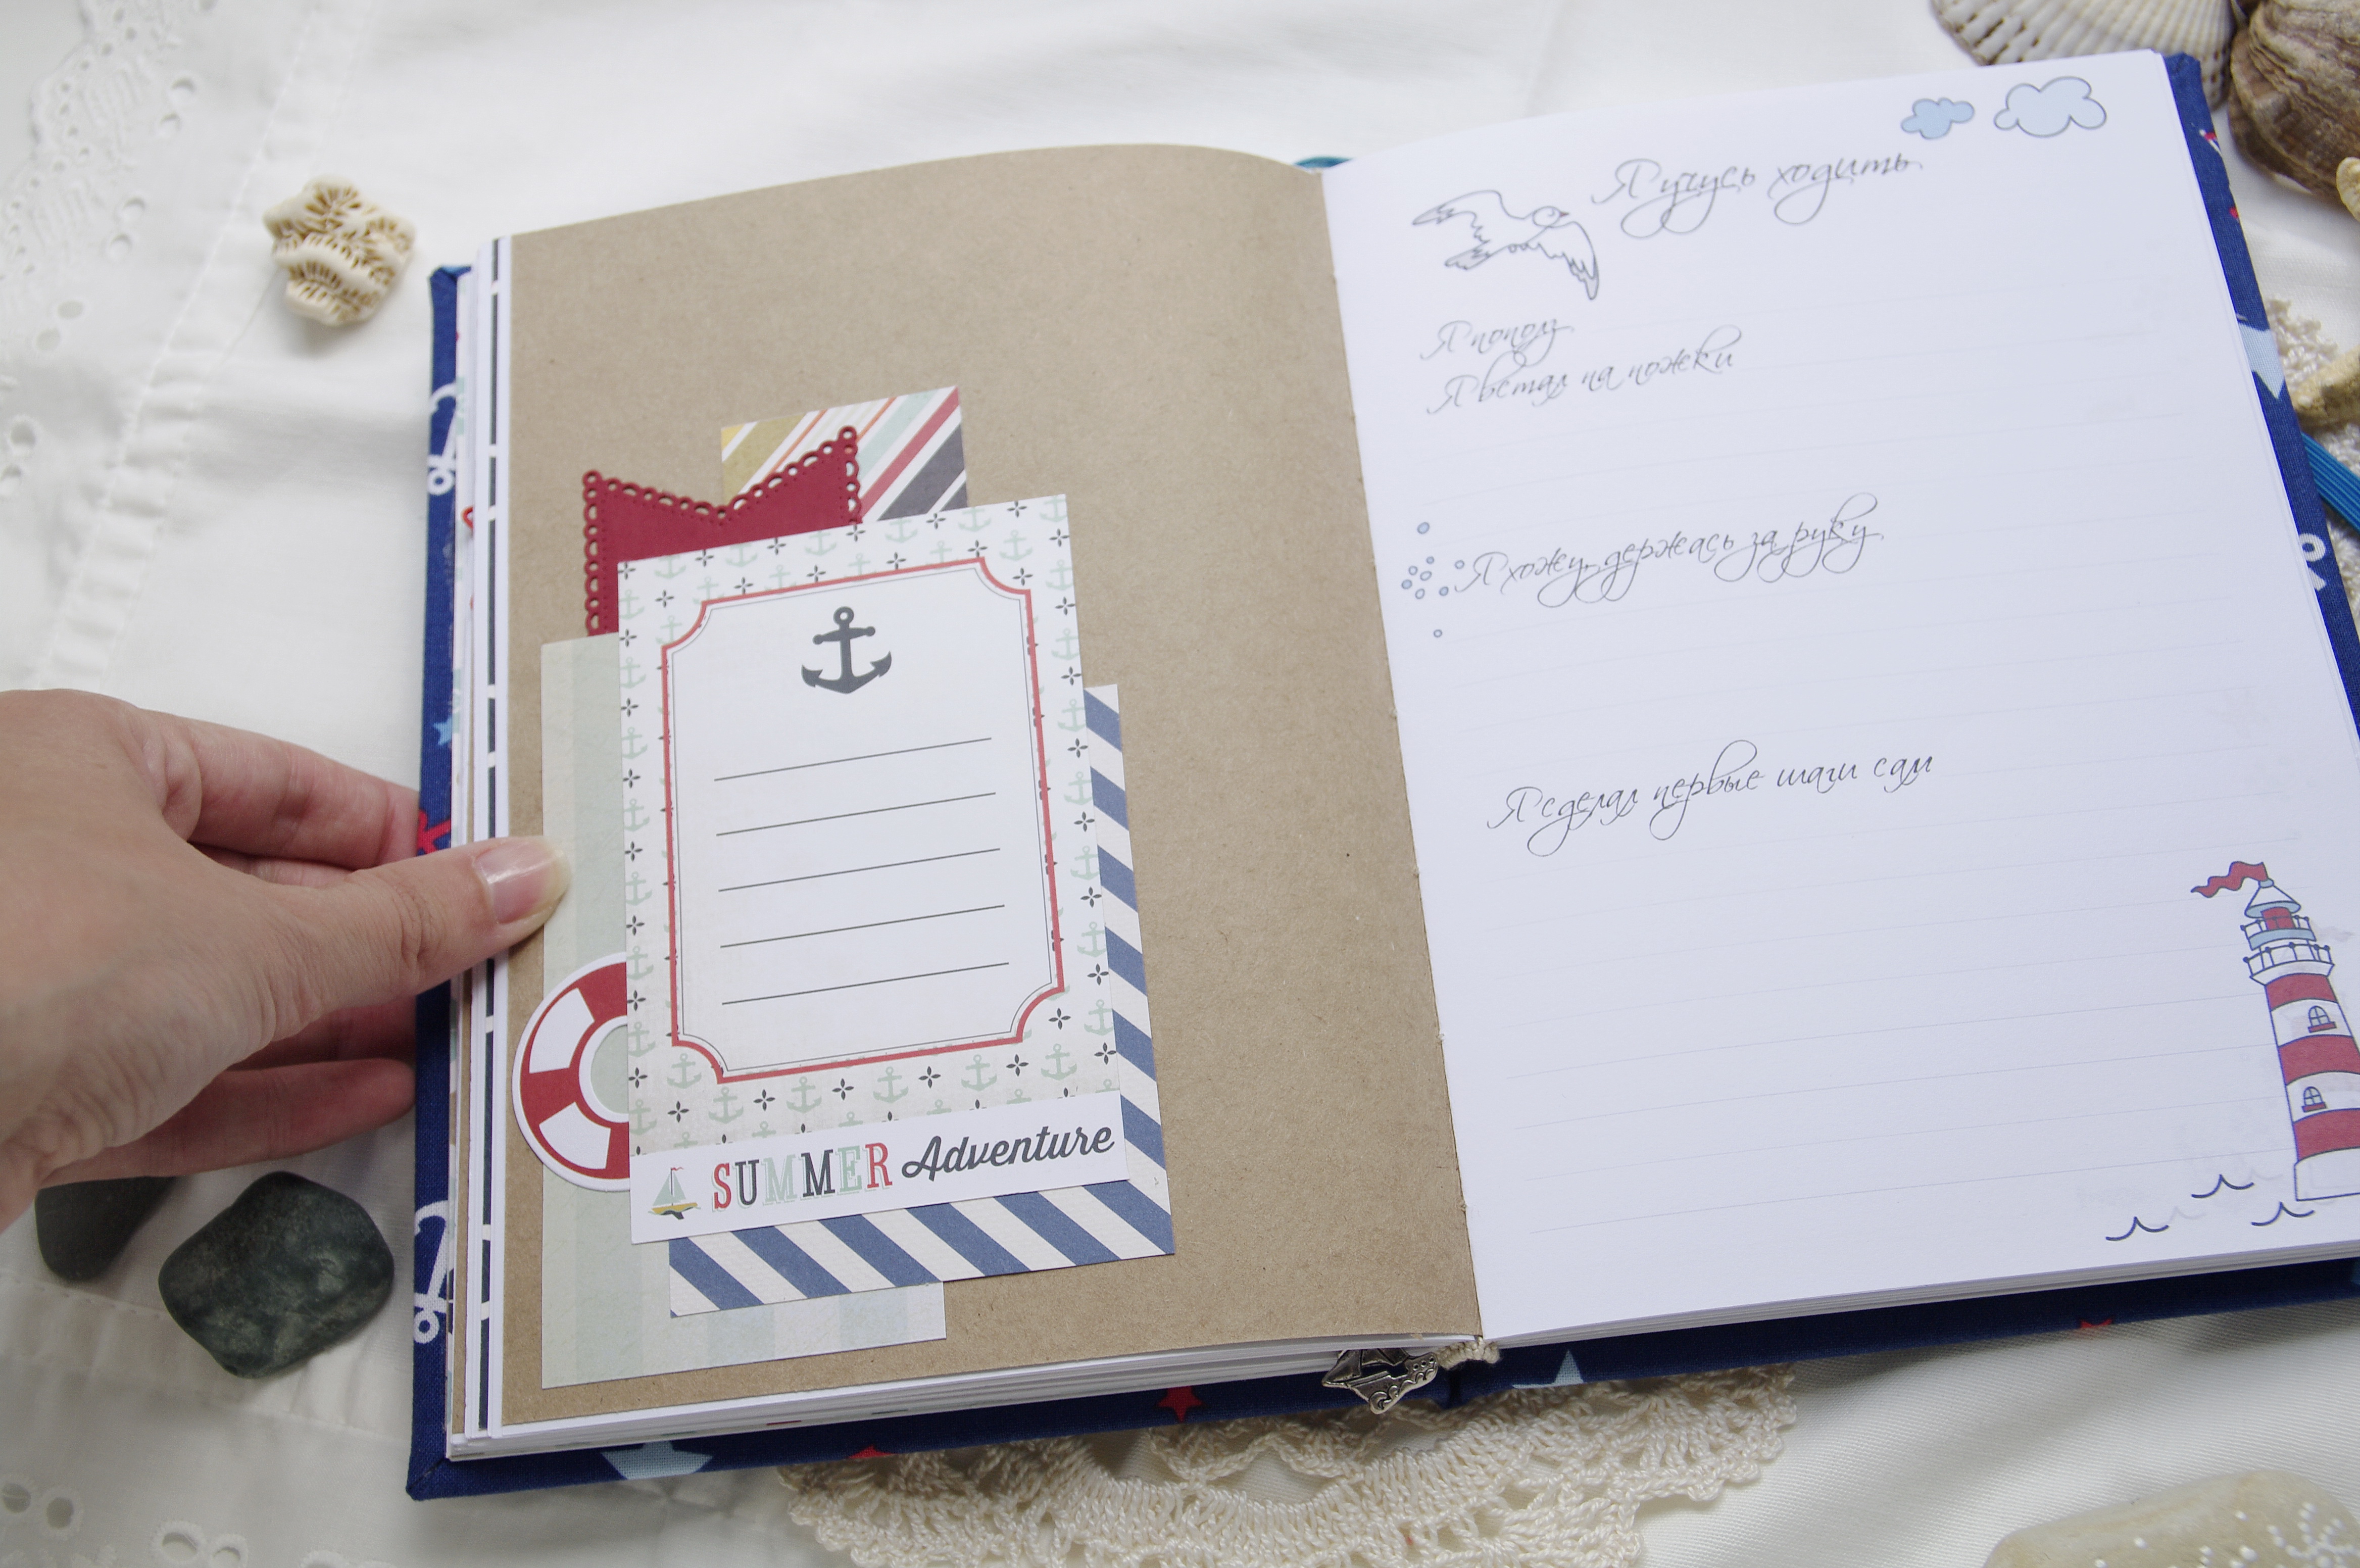 SUMMER Adventure
Я учусь ходить
Я пополз
Я встал на ножки
Я хожу, держась за руку
Я сделал первые шаги сам